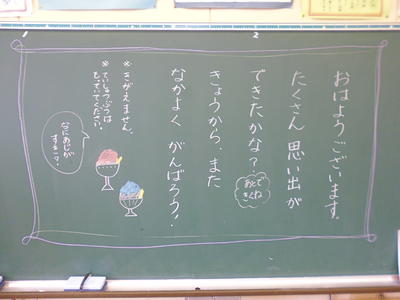 おはようございます。
たくさん 思い出が
できたかな?
あとで
きくね
きょうから、また
なかよく がんばろう!
※きがえません。
※ていしゅつぶつは
だしておいてください。
なにあじが
すき?
1
2